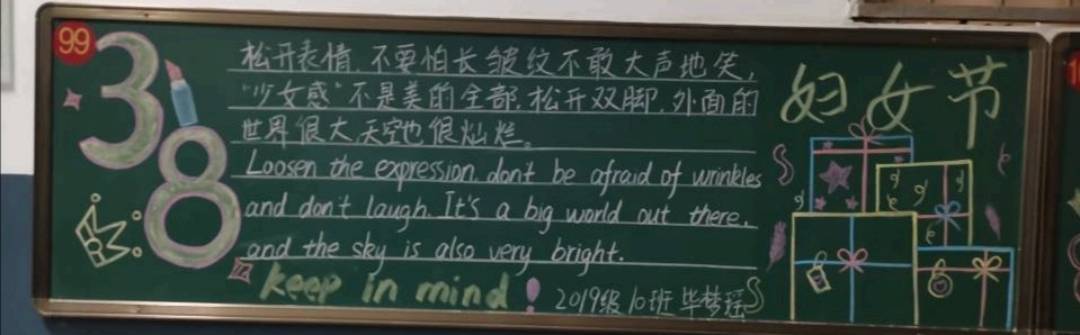 99
38
妇女节
松开表情,不要怕长皱纹不敢大声地笑,
"少女感"不是美的全部,松开双脚,外面的
世界很大,天空也很灿烂。
Loosen the expression, don't be afraid of wrinkles
and don't laugh. It's a big world out there,
and the sky is also very bright.
keep in mind!
2019级10班 毕梦瑶